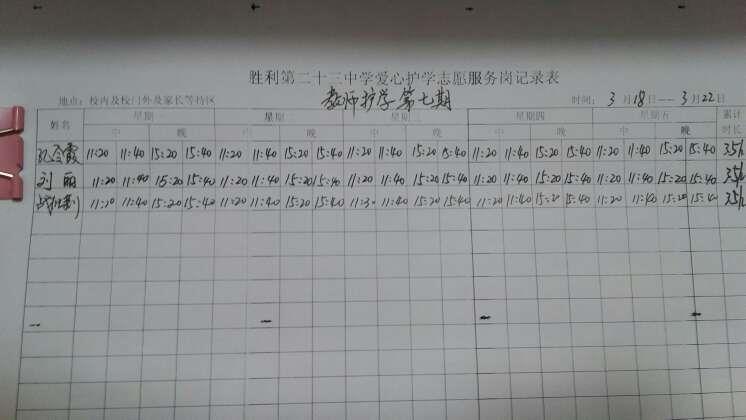 胜利第二十三中学爱心护学志愿服务岗记录表
教师护学第七期
地点：校内及校门外及家长等待区 时间：3月18日——3月22日
姓名 星期一 星期二 星期三 星期四 星期五 累计时长
中 晚 中 晚 中 晚 中 晚 中 晚
11:20 11:40 15:20 15:40 11:20 11:40 15:20 15:40 11:20 11:40 15:20 15:40 11:20 11:40 15:20 15:40 11:20 11:40 15:20 15:40
刘丽 11:20 11:40 15:20 15:40 11:20 11:40 15:20 15:40 11:20 11:40 15:20 15:40 11:20 11:40 15:20 15:40 11:20 11:40 15:20 15:40
11:20 11:40 15:20 15:40 11:20 11:40 15:20 15:40 11:30 11:40 15:20 15:40 11:20 11:40 15:20 15:40 11:20 11:40 15:20 15:40